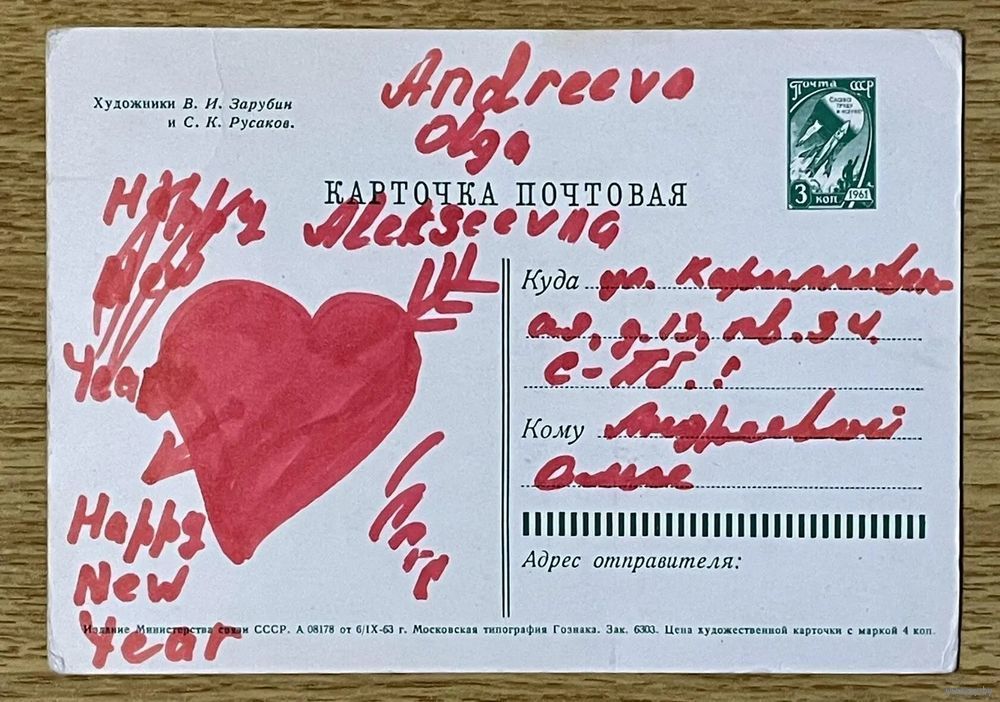 Художники В. И. Зарубин
и С. К. Русаков.
Andreeva
Olga
Alekseevna
КАРТОЧКА ПОЧТОВАЯ
Почта СССР
СЛАВА
ТРУДУ
И НАУКЕ
3 КОП 1961
Happy
New
Year
Куда ул. Кирилловск-
ая, д. 13, кв. 34.
С-Пб.!
Кому Андреевой
Ольге
Адрес отправителя:
Happy
New
Year
Издание Министерства связи СССР. А 08178 от 6/IX-63 г. Московская типография Гознака. Зак. 6303. Цена художественной карточки с маркой 4 коп.